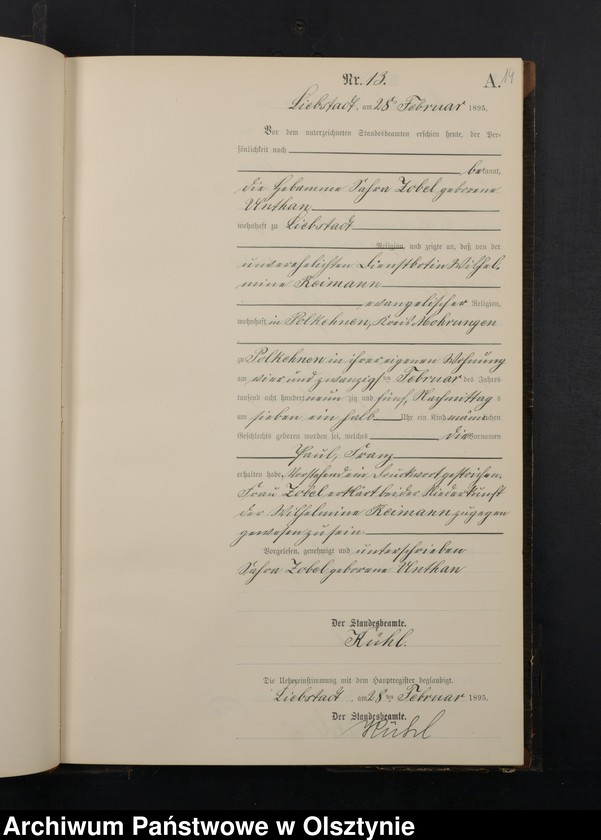 Nr. 13.
A. 14
Liebstadt, am 28ten Februar 1895.
Vor dem unterzeichneten Standesbeamten erschien heute, der Per-
sönlichkeit nach
bekannt,
die Hebamme Zobel geborene
Unthan
wohnhaft zu Liebstadt
Religion, und zeigte an, daß von der
unverehelichten Dienstbotin Wilhel-
mine Reimann
evangelischer Religion,
wohnhaft in Polkehnen, Kreis Mohrungen
zu Polkehnen in ihrer eigenen Wohnung
am vier und zwanzigsten Februar des Jahres
tausend acht hundert neunzig und fünf, Nachmittags
um sieben ein halb Uhr ein Kind männlichen
Geschlechts geboren worden sei, welches die Vornamen
Paul, Franz
erhalten habe. Vorstehend ein Druckwort gestrichen.
Frau Zobel erklärt bei der Niederkunft
der Wilhelmine Reimann zugegen
gewesen zu sein
Vorgelesen, genehmigt und unterschrieben
Zobel geborene Unthan
Der Standesbeamte.
Kühl.
Die Uebereinstimmung mit dem Hauptregister beglaubigt.
Liebstadt, am 28ten Februar 1895.
Der Standesbeamte.
Kühl
Archiwum Państwowe w Olsztynie